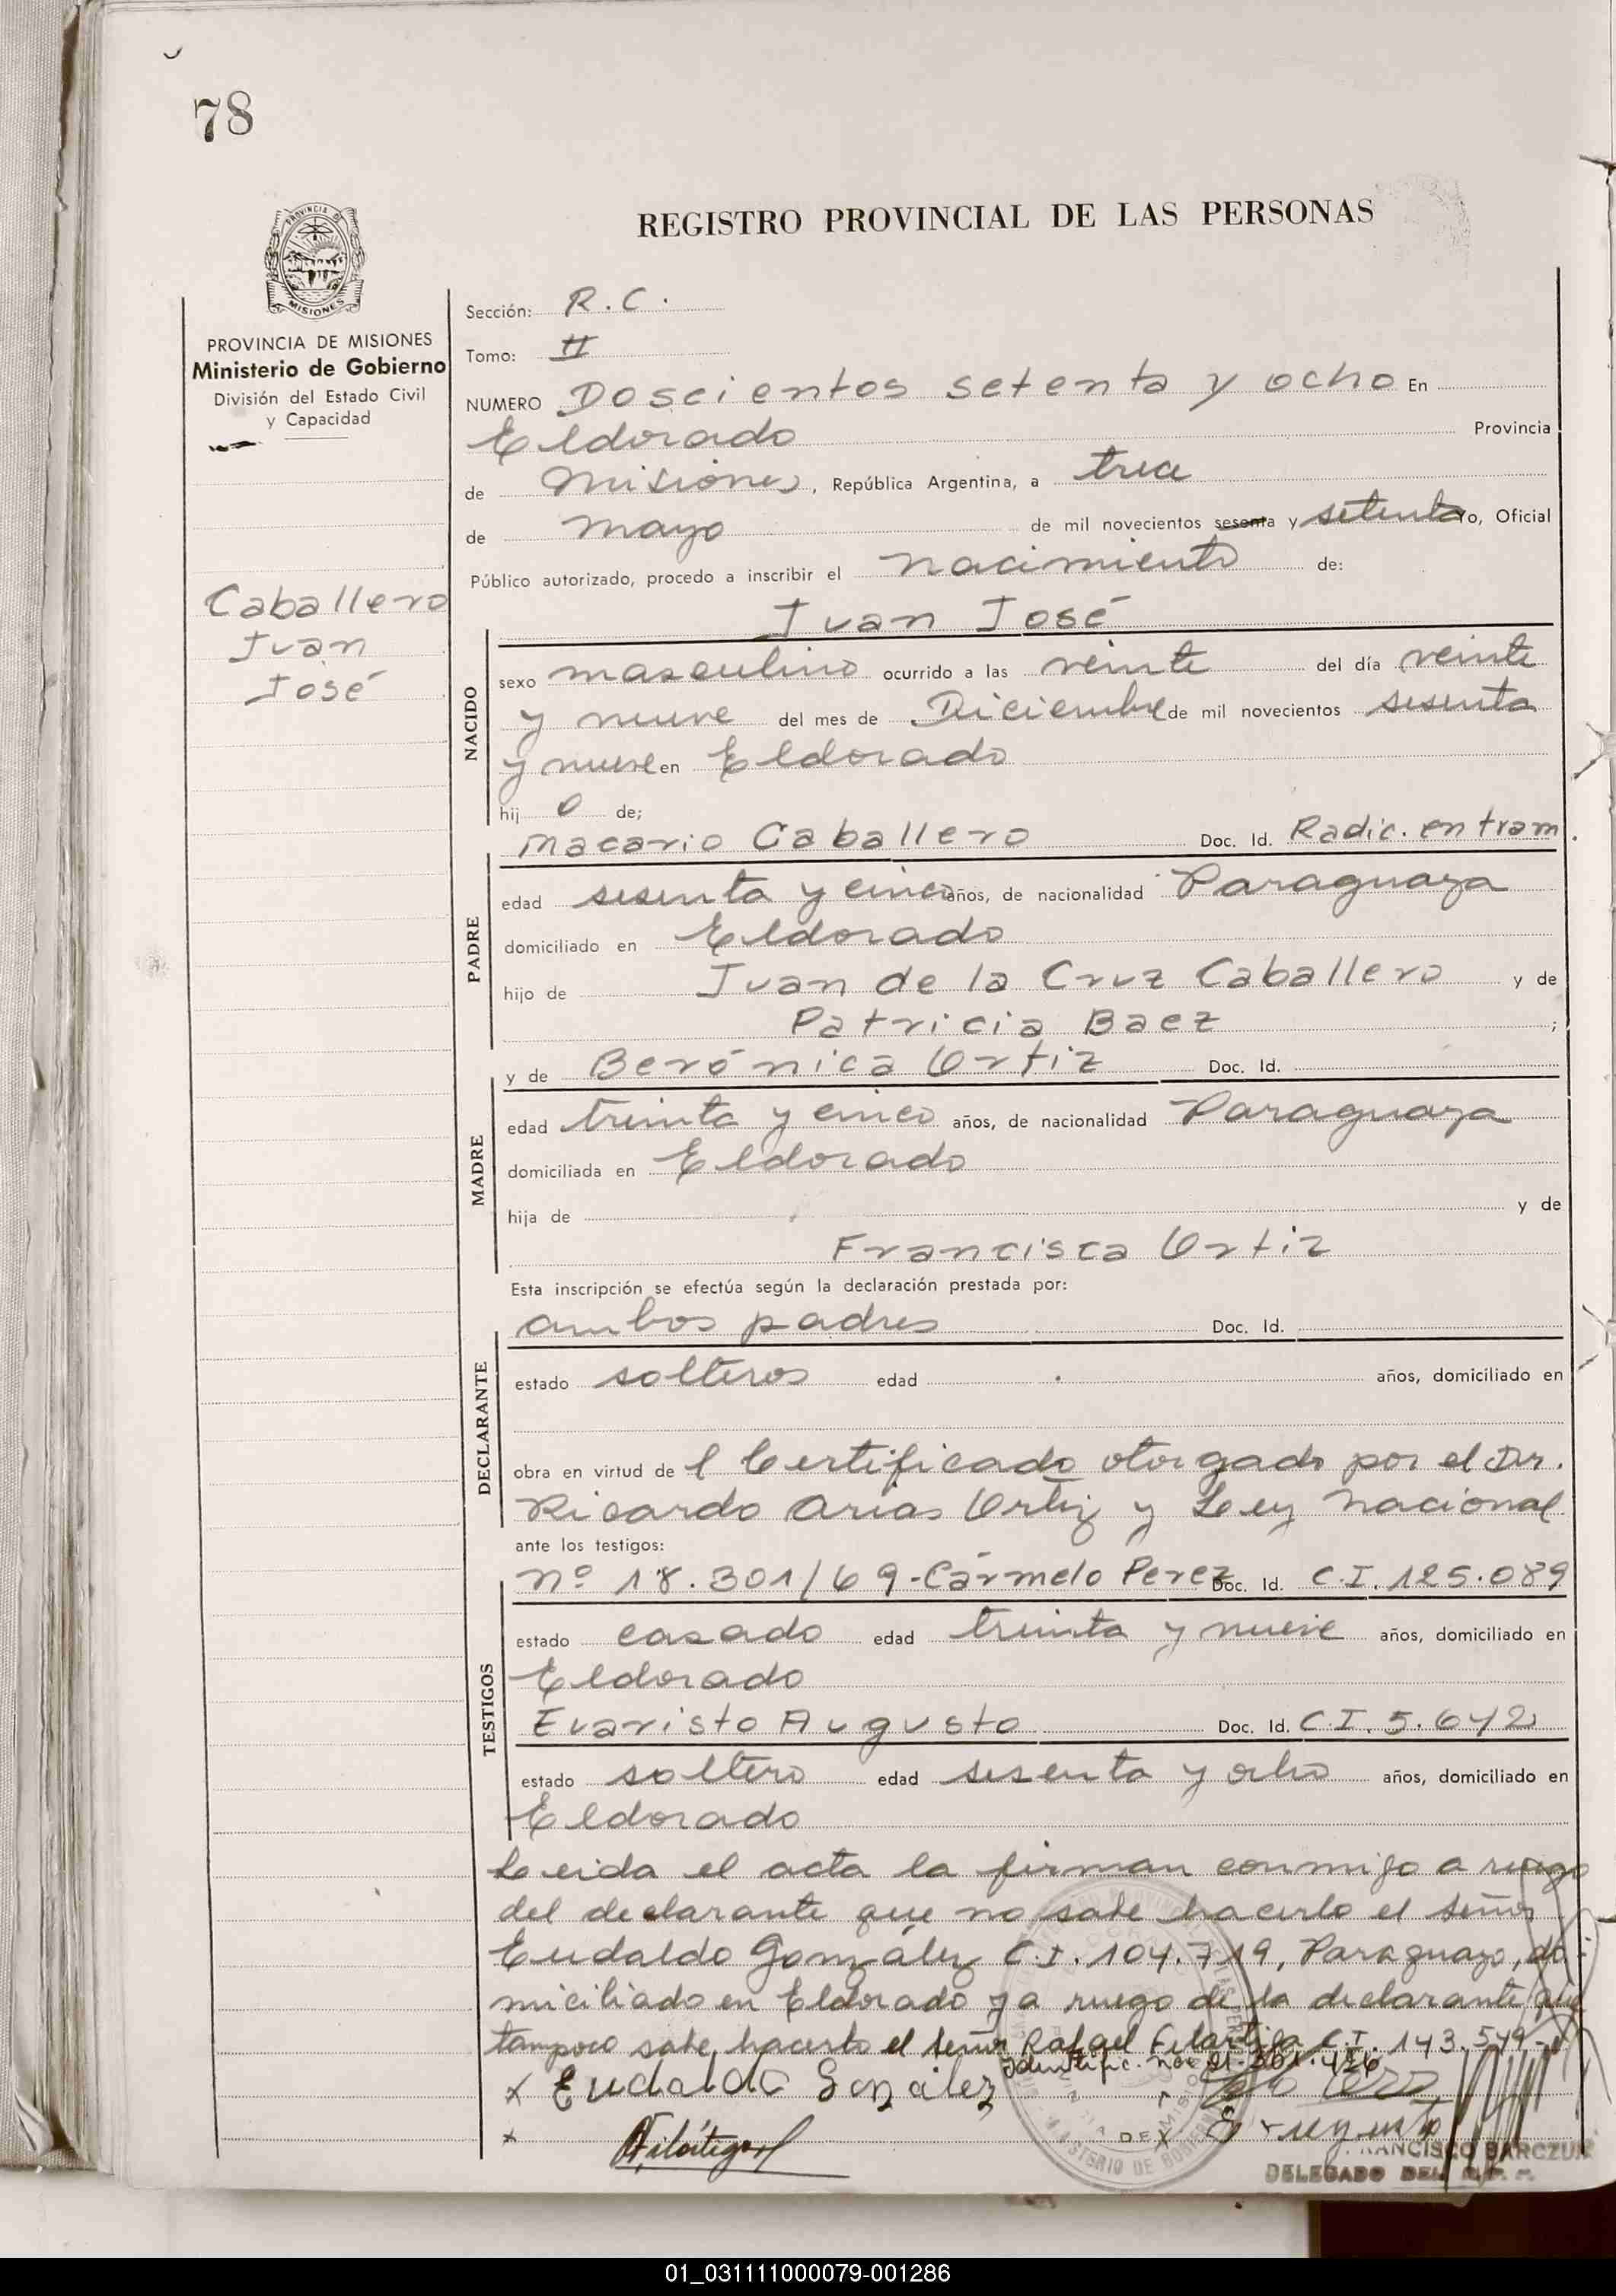 78
REGISTRO PROVINCIAL DE LAS PERSONAS
PROVINCIA DE
MISIONES
PROVINCIA DE MISIONES
Ministerio de Gobierno
División del Estado Civil
y Capacidad
Caballero
Juan
José
Sección: R.C.
Tomo: II
NUMERO Doscientos setenta y ocho En
Eldorado Provincia
de Misiones, República Argentina, a trece
de mayo de mil novecientos sesenta y setenta Yo, Oficial
Público autorizado, procedo a inscribir el nacimiento de:
Juan José
NACIDO
sexo masculino ocurrido a las veinte del día veinte
y nueve del mes de Diciembre de mil novecientos sesenta
y nueve en Eldorado
hij o de;
Macario Caballero Doc. Id. Radic. en tram.
PADRE
edad sesenta y cinco años, de nacionalidad Paraguaya
domiciliado en Eldorado
hijo de Juan de la Cruz Caballero y de
Patricia Baez ;
y de Berónica Ortiz Doc. Id.
MADRE
edad treinta y cinco años, de nacionalidad Paraguaya
domiciliada en Eldorado
hija de y de
Francisca Ortiz
Esta inscripción se efectúa según la declaración prestada por:
ambos padres Doc. Id.
DECLARANTE
estado solteros edad años, domiciliado en
obra en virtud de l Certificado otorgado por el Dr.
Ricardo Arias Ortiz y Ley Nacional
ante los testigos:
Nº 18.301/69-Cármelo Perez Doc. Id. C.I. 125.089
TESTIGOS
estado casado edad treinta y nueve años, domiciliado en
Eldorado
Evaristo Augusto Doc. Id. C.I. 5.642
estado soltero edad sesenta y ocho años, domiciliado en
Eldorado
Leida el acta la firman conmigo a ruego
del declarante que no sabe hacerlo el señor
Eudaldo González C.I. 104.719, Paraguayo, do-
miciliado en Eldorado y a ruego de la declarante que
tampoco sabe hacerlo el señor Rafael Filartiga C.I. 143.549
Identific. nº 21.361.426
x Eudaldo Gonzalez
x Filártiga
FRANCISCO BARCZUK
DELEGADO DEL R.P.P.
01_031111000079-001286